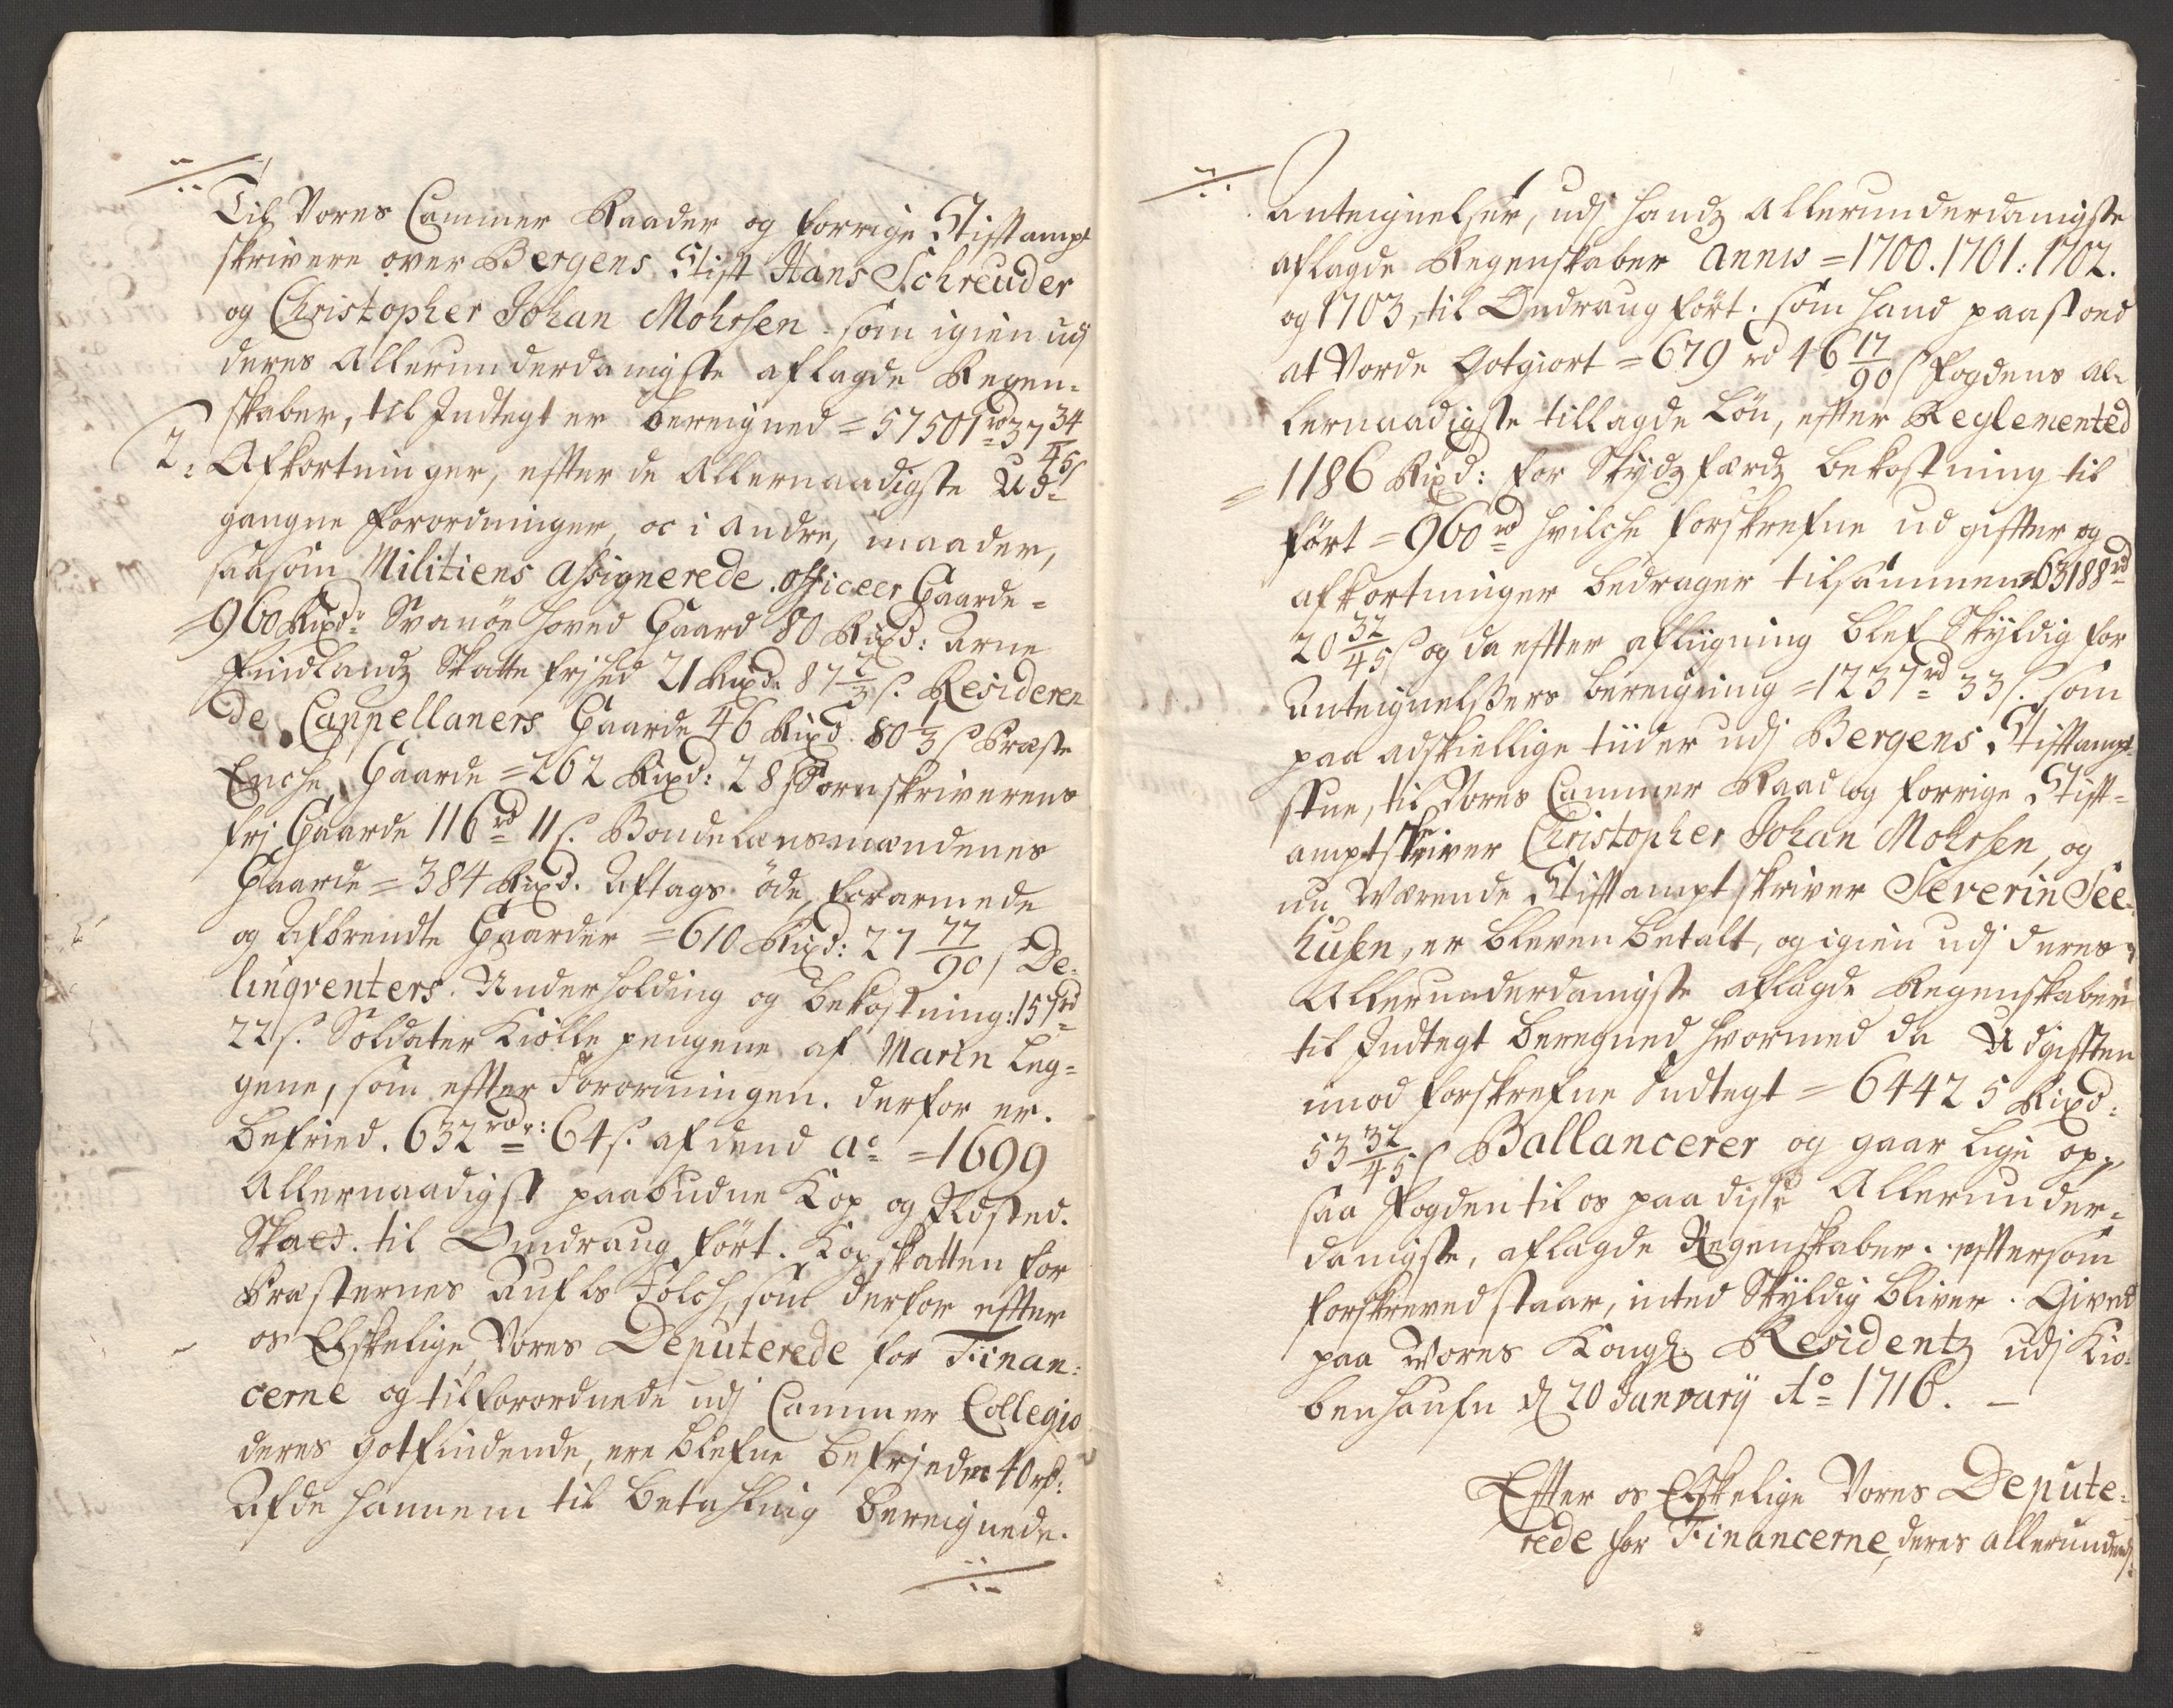 Til Vores Cammer Raader og forrige Stiftampt
skrivere over Bergens Stift Hans Schreuder
og Christopher Johan Mohrsen som igien udj
deres Allerunderdanigste aflagde Regen-
skaber, til Indtegt er bereigned = 57501 rd 37 34/45 s
2: Afkortninger, efter de Allernaadigste Ud-
gangne forordninger, oc i andre maader,
saasom Militiens Assignerede Officeer Gaarde =
= 960 Rixd: Svanöe hoved Gaard 80 Rixd: Arne
Findlandz Skatte frihed 21 Rixd: 87 2/3 s. Resideren
de Cappellaners Gaarde 46 Rixd 80 1/3 s Præste
Enche Gaarde = 262 Rixd: 28 s Sornskriverens
frj Gaarde 116 rd 11 s. Bondelænsmændenes
Gaarde = 384 Rixd. Aftags öde, forarmede
og Afbrendte Gaarder = 610 Rixd: 27 77/90 s De-
linqventers Underholding og bekostning: 157 rd
22 s. Soldater Kiolle pengene af Marin Leg-
gene, som efter Forordningen derfor er
befried. 632 rdr: 64 s. af dend Ao = 1699
Allernaadigst paabudne Kop og Ildsted
Skaed til Omdraug fört. Kopskatten for
Præsternes Aufls Folch, som derfor efter
os Elskelige Vores Deputerede for Finan-
cerne og tilforordnede udj Cammer Collegio
deres gotfindende, ere blefne befriede 40 rd:
Af de hannem til Betahling bereignede
Anteignelser, udj handz Allerunderdanigste
aflagde Regenskaber Annis = 1700. 1701: 1702.
og 1703, til Omdraug fört. som hand paastoed
at Vorde Gotgiort = 679 rd 46 17/90 s Fogdens al-
lernaadigste tillagde Lön, efter Reglemented
= 1186 Rixd: for Skydzferdz bekostning til
fört = 960 rd hvilche forskrefne udgifter og
afkortninger bedrager tilsammen = 63188 rd
20 32/45 s og da efter aflignning blef Skyldig for
Anteignelsers bereigning = 1237 rd 33 s. som
paa adskiellige tiider udj Bergens Stiftampt
stue, til Vores Cammer Raad og forrige Stift-
amptskriver Christopher Johan Mohrsen, og
nu Værende Stiftamptskriver Severin See-
husen, er bleven betalt, og igien udj deres
Allerunderdanigste aflagde Regenskaber
til Indtegt beregned hvormed da Udgiften
imod forskrefne Indtegt = 64425 Rixd:
53 32/45 s Ballancerer og gaar lige op,
saa Fogden til os paa disse Allerunder-
danigste, aflagde Regenskaber. eftersom
forskreved staar, inted Skyldig bliver. Gived
paa Vores Kongl: Residentz udj Kiö-
benhaufn d 20 Janvary Ao 1716. -
Efter os Elskelige Vores Depute-
rede for Financerne, deres allerunderd: